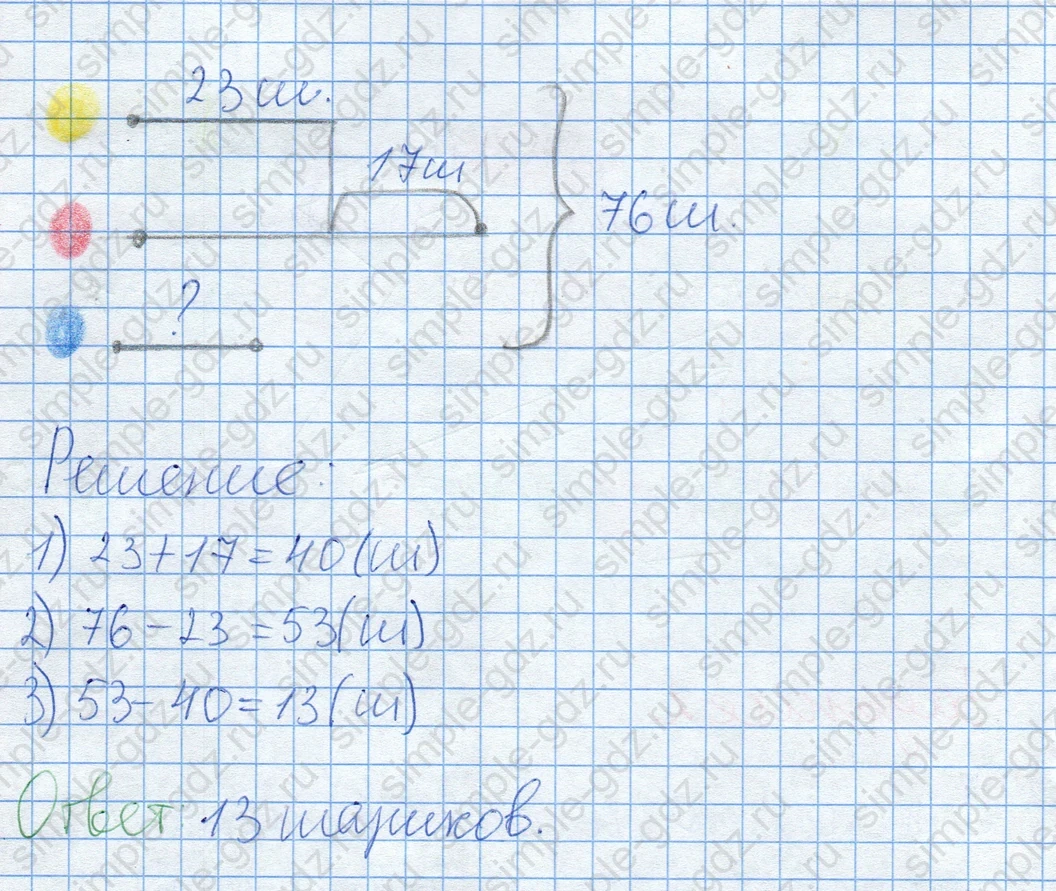 23 ш.
17 ш
76 ш.
?
Решение:
1) 23 + 17 = 40 (ш)
2) 76 - 23 = 53 (ш)
3) 53 - 40 = 13 (ш)
Ответ 13 шариков.
simple-gdz.ru